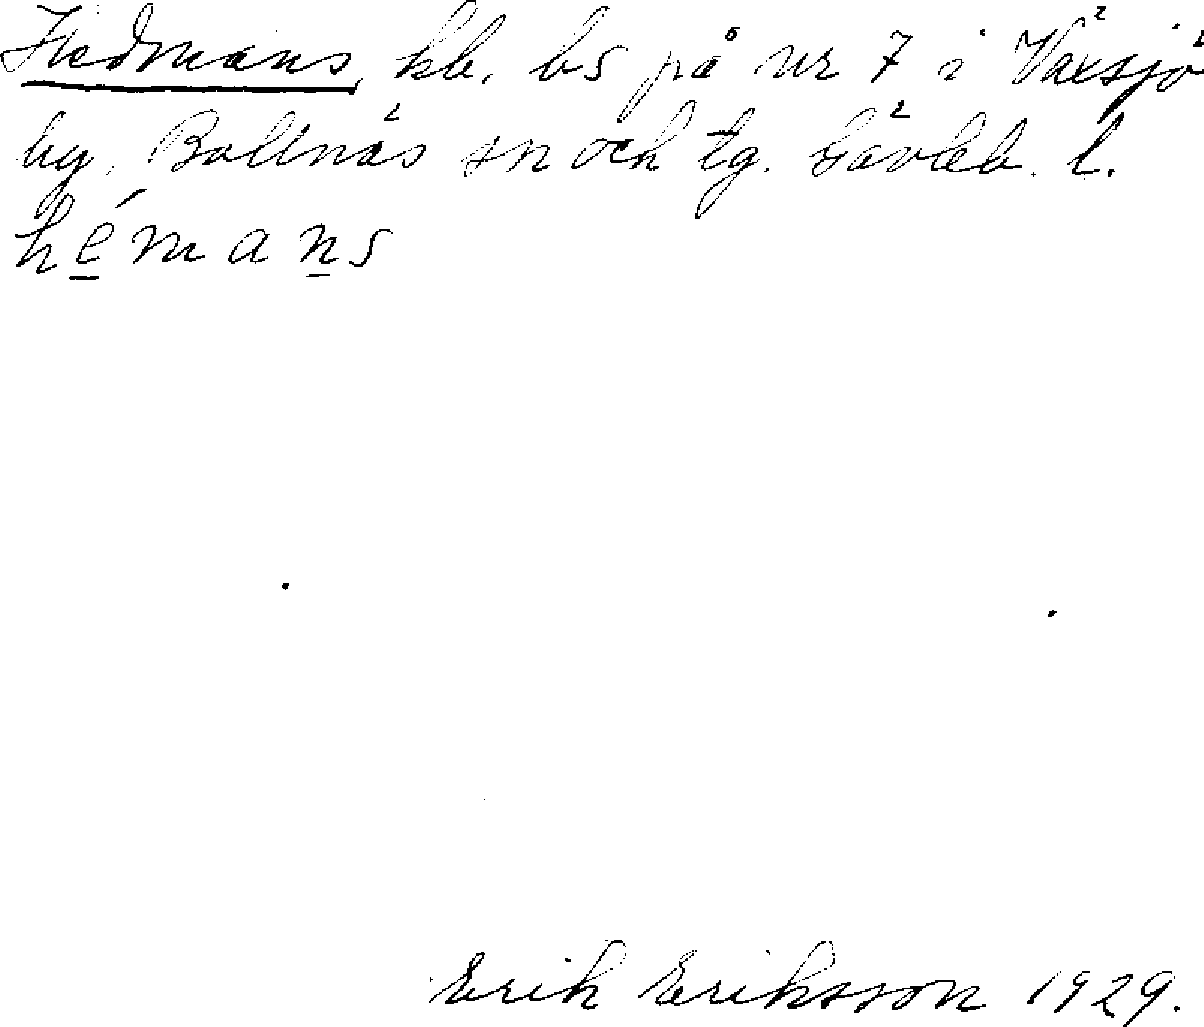 Hedmans, kb. bs på nr 7 i Växsjö
by, Bollnäs sn och tg. Gävleb. l.
hémans
Erik Eriksson 1929.